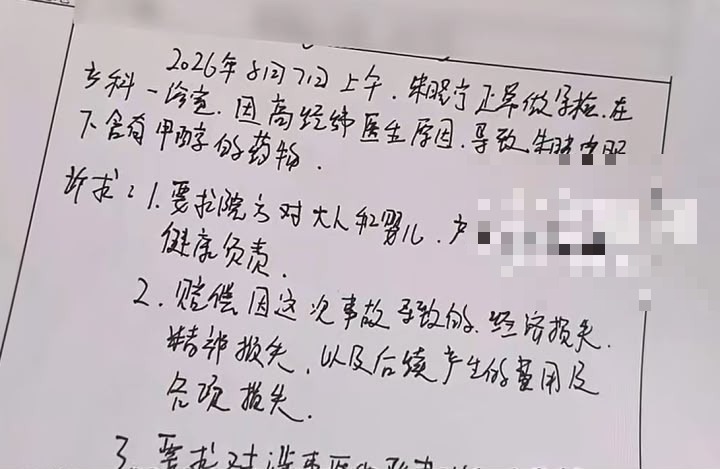 2026年8月7日上午.朱晓宁正常做孕检.在
专科一诊室.因高经纬医生原因.导致朱晓宁服
下含有甲醇的药物.
诉求:1.要求院方对大人和婴儿.产
健康负责.
2.赔偿因这次事故导致的.经济损失.
精神损失.以及后续产生的费用及
各项损失.
3.要求对涉事医生